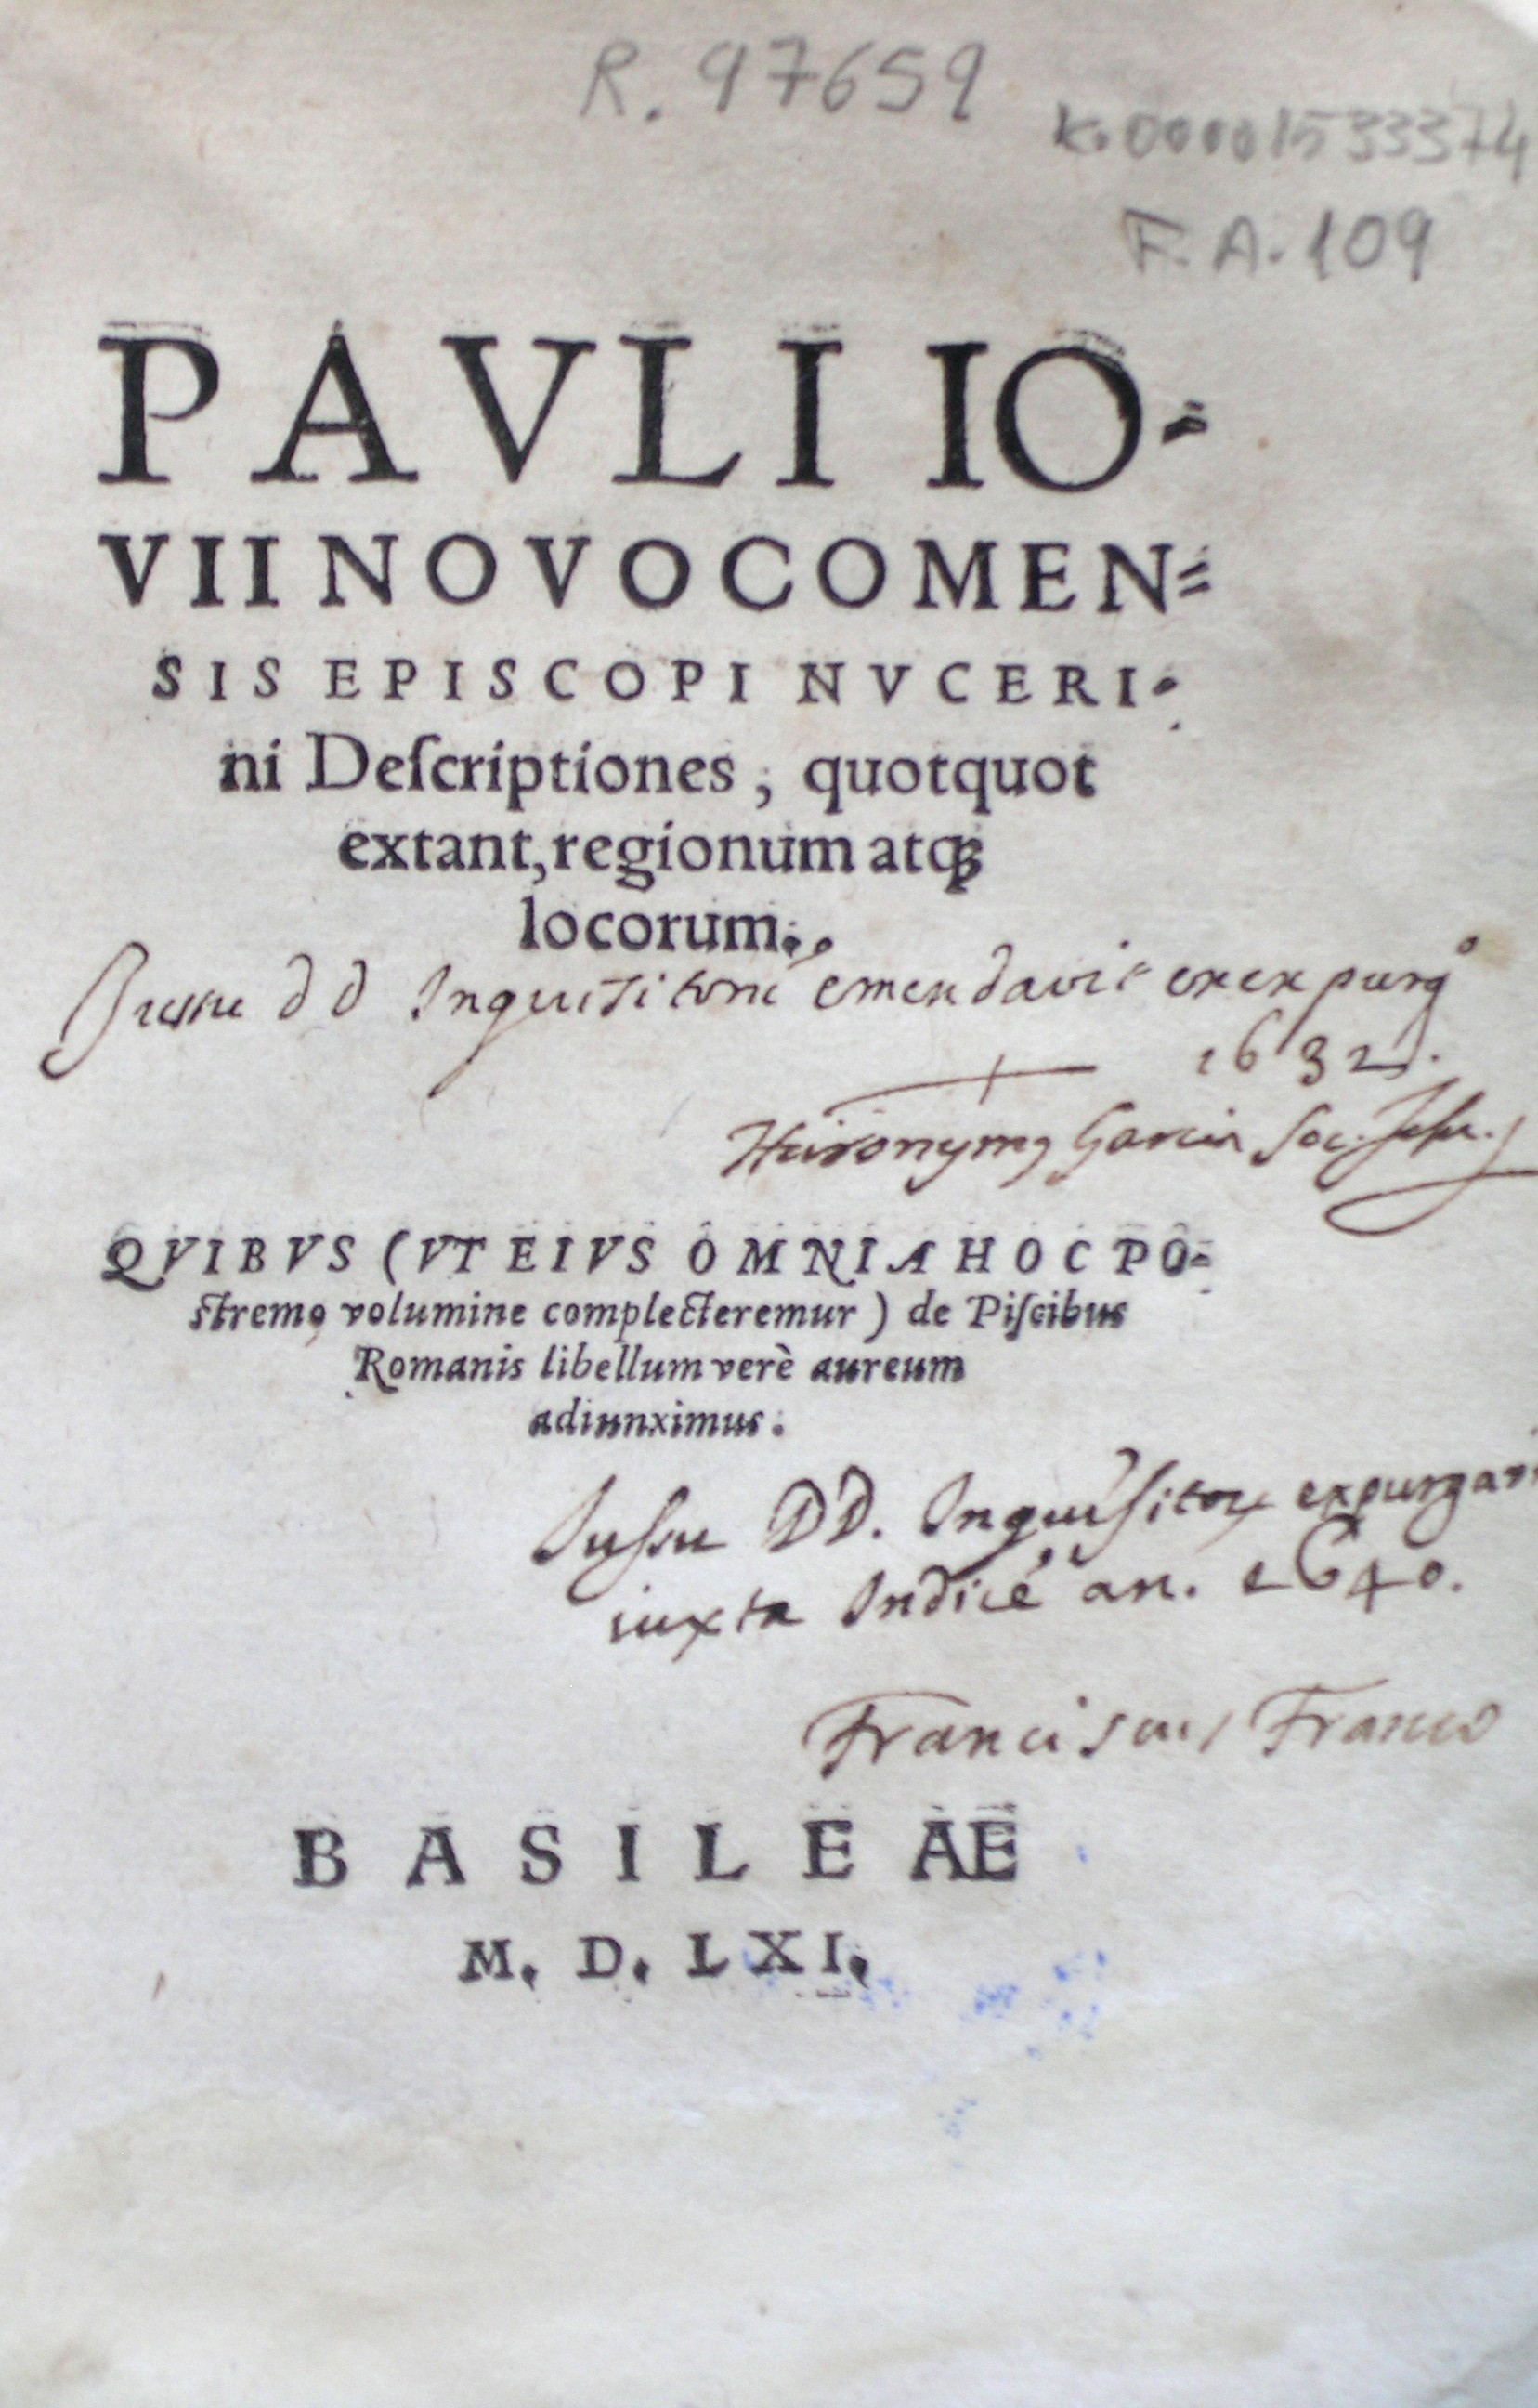 R. 97659
K.00001533374
F. A. 109
PAVLI IO-
VII NOVOCOMEN-
SIS EPISCOPI NVCERI-
ni Deſcriptiones, quotquot
extant, regionum atqꝫ
locorum.
Jussu DD Inquisitorũ emendavit ex expurgº
1632.
Hieronymꝰ Garcia Soc. Jesu.
QVIBVS (VT EIVS OMNIA HOC PO-
ſtremo volumine complecteremur) de Piſcibus
Romanis libellum verè aureum
adiunximus.
Jussu DD. Inquisitorꝝ
iuxta Indicẽ an. 1640.
Franciscus Franco
BASILEAE
M. D. LXI.